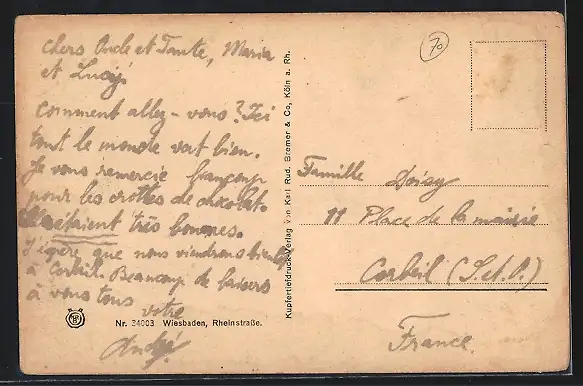 chers Oncle et Tante, Maria
et Lucy.
comment allez-vous? Ici
tout le monde vat bien.
Je vous remercie beaucoup
pour les crottes de chocolat.
étaient très bonnes.
J'espère que nous viendrons bientôt
à Corbeil. Beaucoup de baisers
à vous tous
votre
André
Nr. 34003 Wiesbaden, Rheinstraße.
Kupfertiefdruck-Verlag von Karl Rud. Bremer & Co, Köln a. Rh.
70
Famille Doisy
11 Place de la mairie
Corbeil (S.et.O.)
France